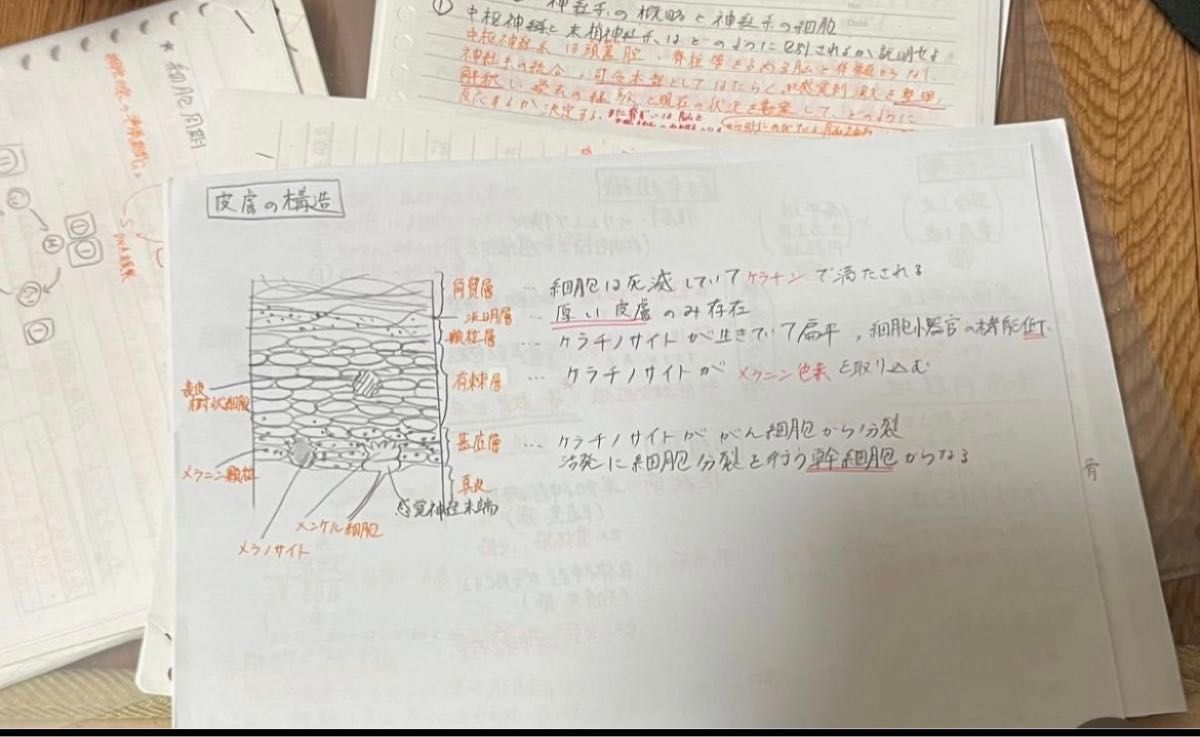 ① 神経系の概略と神経系の細胞
中枢神経と末梢神経系はどのように区別されるか説明せよ
中枢神経系は頭蓋腔、脊柱管をしめる脳と脊髄からなり、
神経系の統合、司令本部としてはたらく。感覚刺激を整理、
解釈し、過去の経験と現在の状況を勘案して、どのように
反応するか決定する。
★ 細胞周期
皮膚の構造
角質層 … 細胞は死滅していてケラチンで満たされる
淡明層 … 厚い皮膚のみ存在
顆粒層 … ケラチノサイトが生きていて扁平、細胞小器官の機能低下
有棘層 … ケラチノサイトがメラニン色素を取り込む
表皮
樹状細胞
基底層 … ケラチノサイトががん細胞から分裂
活発に細胞分裂を行う幹細胞からなる
メラニン顆粒
真皮
感覚神経末端
メンケル細胞
メラノサイト
骨